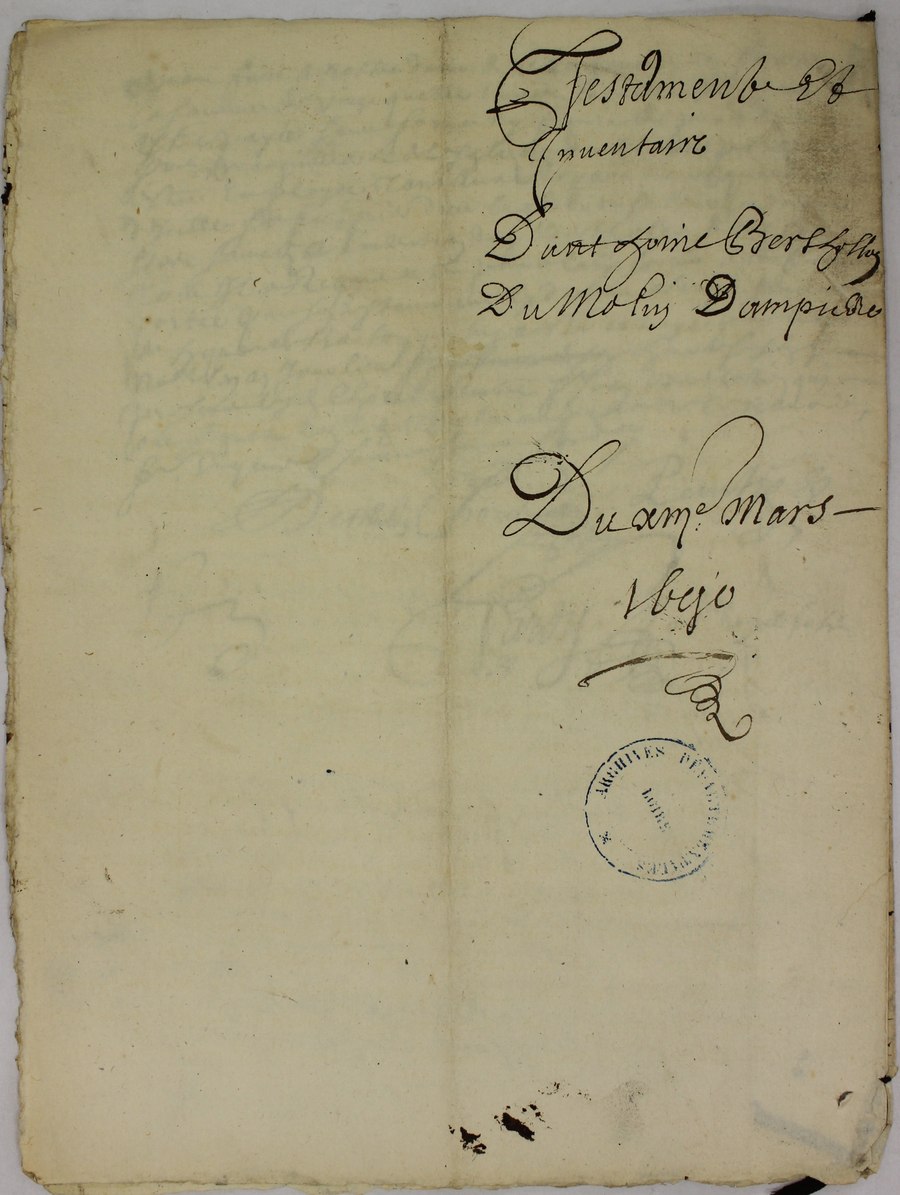 Testament Et
Inuentaire
Dantthoine Berthollon
Du Molin Dampiere
Du xme. Mars
1690
ARCHIVES DÉPARTEMENTALES
LOIRE